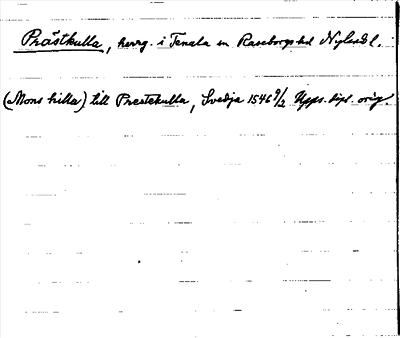 Prästkulla, herrg. i Tenala sn Raseborgs hd Nylands l.
(Mons hilla) till Prestekulla, Svedja 1546 9/2 Upps. dipl. orig.